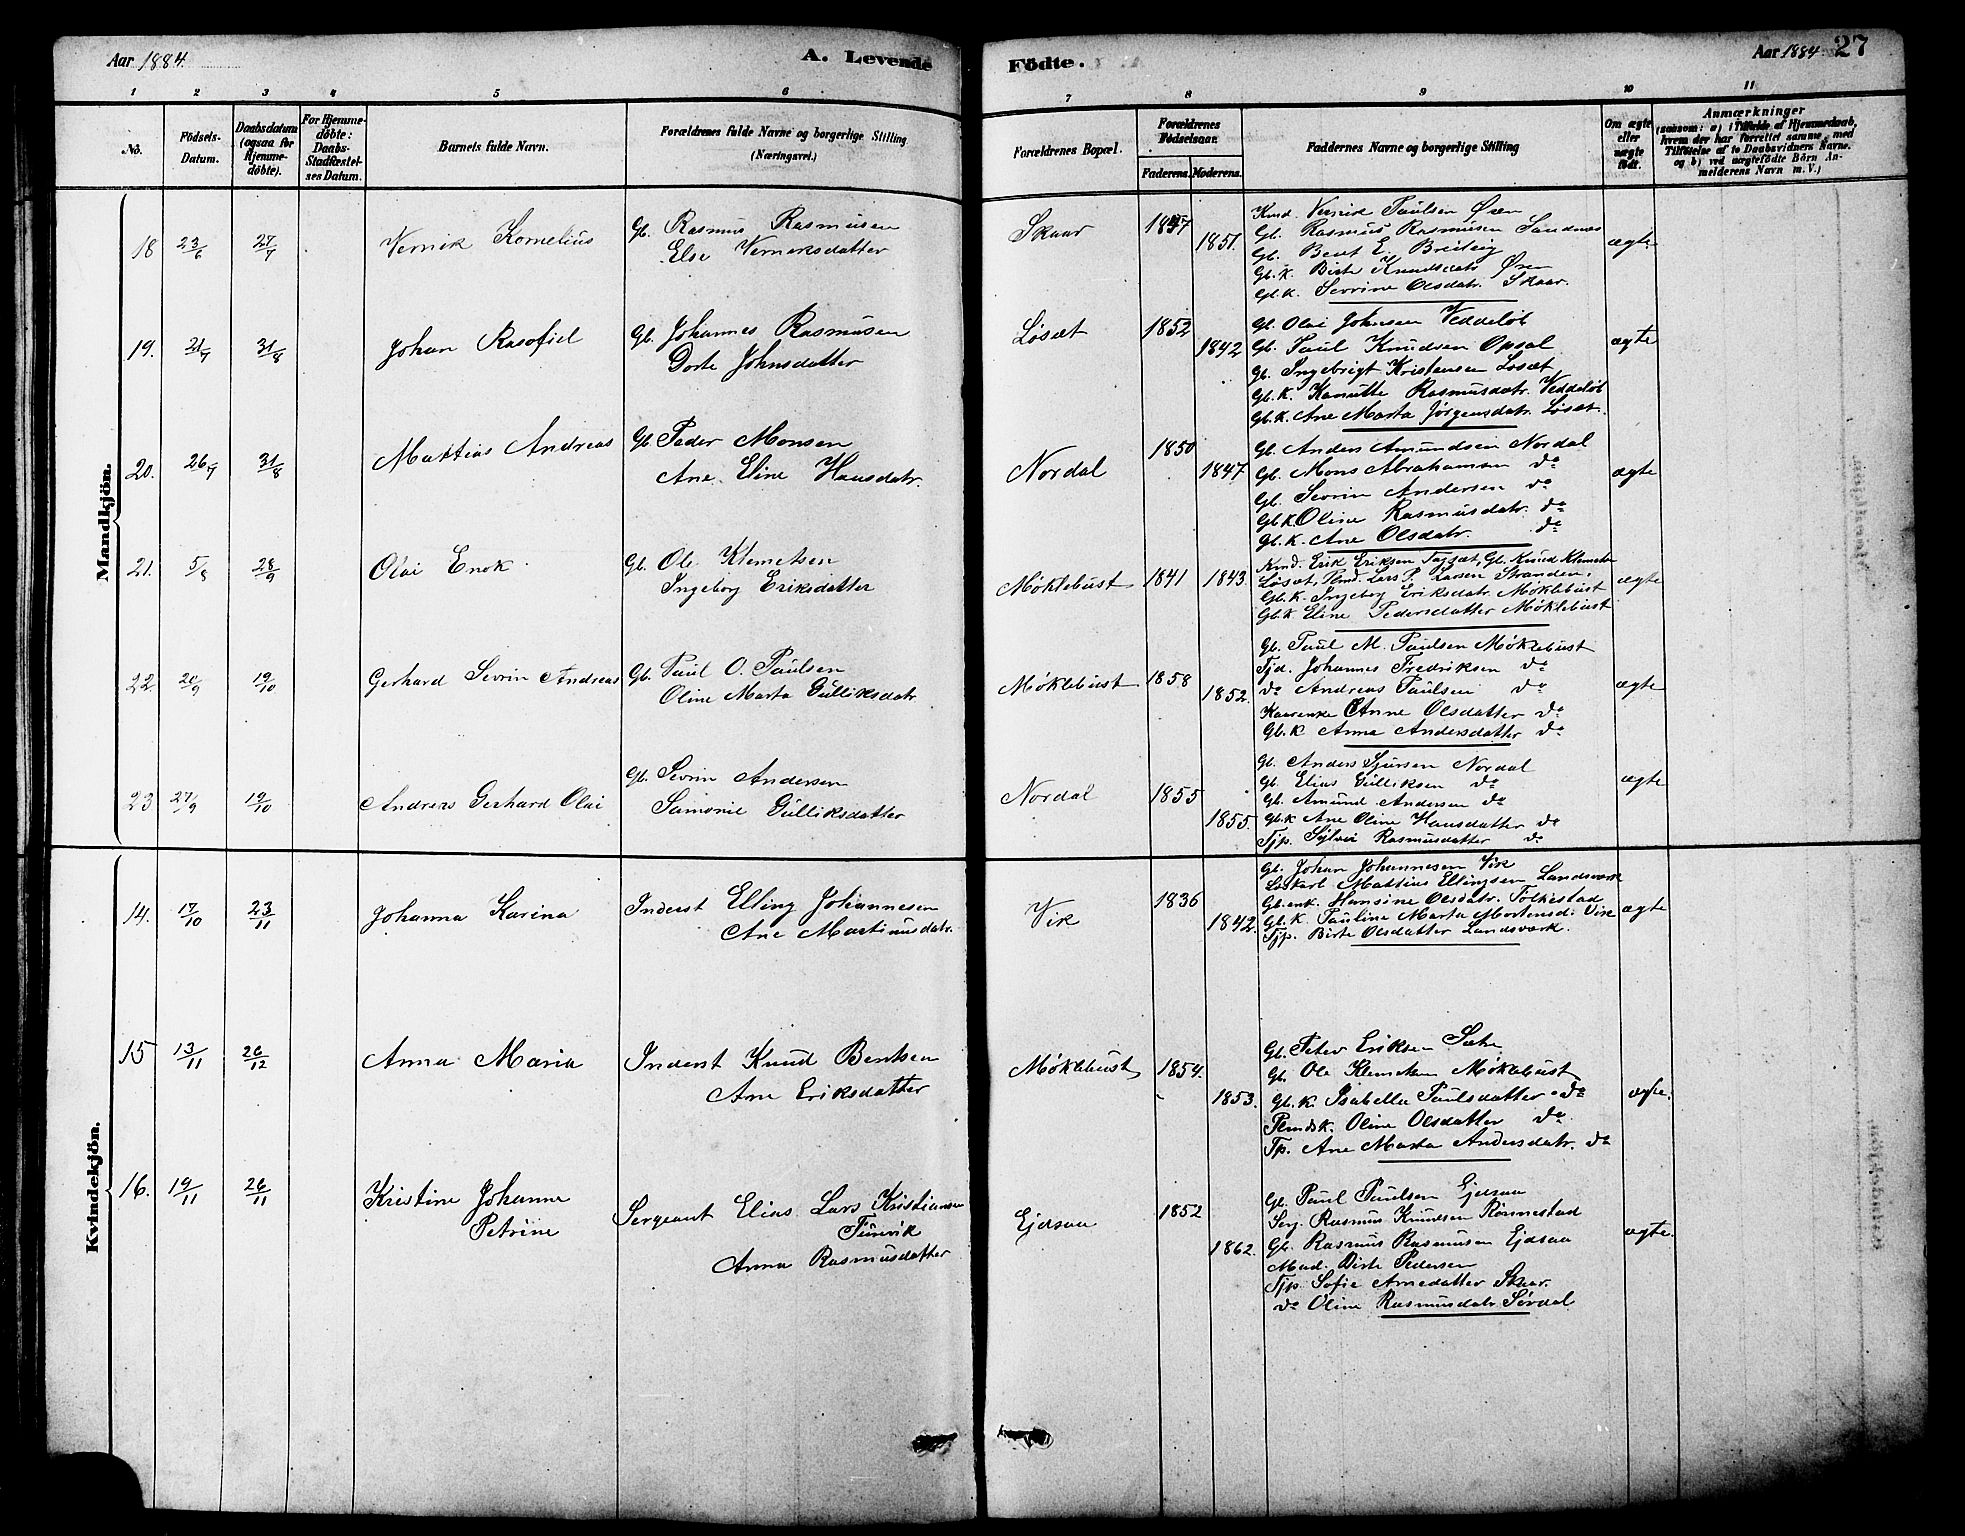 Aar 1884. A. Levende
Födte. Aar 1884. 27
1 2 3 4 5 6
7 8 9 10 11
No. Födsels-Datum. Daabsdatum (ogsaa for Hjemme-døbte). For Hjemme-døbte: Daabs-Stadfæstel-ses Datum. Barnets fulde Navn. Forældrenes fulde Navne og borgerlige Stilling (Næringsvei.)
Forældrenes Bopæl. Forældrenes Fødselsaar. Faderens. Moderens. Faddernes Navne og borgerlige Stilling Om ægte eller uægte født. Anmærkninger
(saasom: a) i Tilfælde af Hjemmedaab,
hvem der har forrettet samme, med
Tilföielse af to Daabsvidners Navne.
og b) ved uægtefödte Börn An-
melderens Navn m. V.)
Mandkjön.
18 23/6 27/7 Vernik Kornelius Gb. Rasmus Rasmusen
Else Verniksdatter
Skaar 1857 1851. ægte
Kmd. Vernik Paulsen Øren
Gb. Rasmus Rasmusen Sandnes
Gb. Bent E. Breiteig
Gb. K. Birte Knudsdatr Øren
Gb. K. Sevrine Olsdatr. Skaar.
19. 21/7 31/8 Johan Rasofiel Gb. Johannes Rasmusen
Dorte Johnsdatter
Løsæt 1852 1842 ægte
Gb. Olai Johnsen Veddeløb
Gb. Paul Knudsen Opsal
Gb. Ingebrigt Kristensen Løsæt
Gb. K. Kanutte Rasmusdatr. Veddeløb
Gb. K. Ane Marta Jørgensdatr. Løsæt.
20. 26/7 31/8 Mattias Andreas Gb. Peder Monsen
Ane Eline Hansdatr.
Nordal 1850 1847 ægte
Gb. Anders Amundsen Nordal
Gb. Mons Abrahamsen do
Gb. Sevrin Andersen do
Gb. K. Oline Rasmusdatr. do
Gb. K. Ane Olsdatr. do
21. 5/8 28/9 Olai Enok Gb. Ole Klemetsen
Ingeborg Eriksdatter
Møklebust 1841 1843 ægte
Kmd. Erik Eriksen, Gb. Knud Klemetsen
Løsæt, Lars P. Larsen Stranden,
Gb. K. Ingeborg Eriksdatr. Møklebust
Gb. K. Eline Pedersdatter Møklebust
22 20/9 19/10 Gerhard Sevrin Andreas Gb. Paul O. Paulsen
Oline Marta Gulliksdatr.
Møklebust 1858 1852. ægte
Gb. Paul M. Paulsen Møklebust
Tjd. Johannes Fredriksen do
do Andreas Paulsen do
Anne Olsdatter do
Gb. K Anna Andersdatter do
23 27/9 19/10 Andreas Gerhard Olai Gb. Sevrin Andersen
Samonie Gulliksdatter
Nordal 1855 1855. ægte
Gb. Anders Sjursen Nordal
Gb. Elias Gulliksen do
Gb. Amund Andersen do
Gb. K Ane Oline Hansdatter do
Tjp. Sylvei Rasmusdatter do
Kvindekjön.
14. 17/10 23/11 Johanna Karina Inderst Elling Johannesen
Ane Martinusdatr.
Vik 1836 1842. ægte
Gb. Johan Johannesen Vik
Mattias Ellingsen Landsværk
Gb. enk. Hansine Olsdatr. Folkestad
Gb. K. Pauline Marta Mortensd. Vik
Tjp. Birte Olsdatter Landsværk.
15 13/11 26/12 Anna Maria Inderst Knud Bentsen
Ane Eriksdatter
Møklebust 1854. 1853. ægte.
Gb. Peter Eriksen Sætre
Gb. Ole Klemetsen Møklebust
Gb. K. Isabella Paulsdatter do
Oline Olsdatter do
Tp. Ane Marta Andersdatr. do
16. 19/11 26/11 Kristine Johanna
Petrine
Sergeant Elias Lars Kristiansen
Turvik
Anna Rasmusdatter
Ejdsaa 1852 1862. ægte.
Gb. Paul Paulsen Ejdsaa
Serg. Rasmus Knudsen Rönnestad
Gb. Rasmus Rasmusen Ejdsaa
Mad. Birte Pedersen
Tjp. Sofie Arnedatter Skaar.
do Oline Rasmusdatr Sørdal